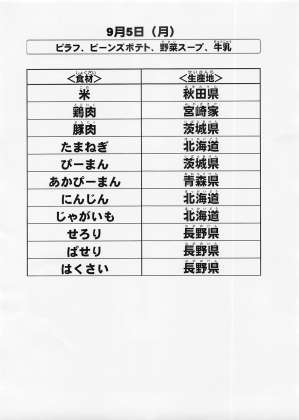 9月5日（月）
ピラフ、ビーンズポテト、野菜スープ、牛乳
＜食材＞ ＜生産地＞
米 秋田県
鶏肉 宮崎家
豚肉 茨城県
たまねぎ 北海道
ぴーまん 茨城県
あかぴーまん 青森県
にんじん 北海道
じゃがいも 北海道
せろり 長野県
ぱせり 長野県
はくさい 長野県